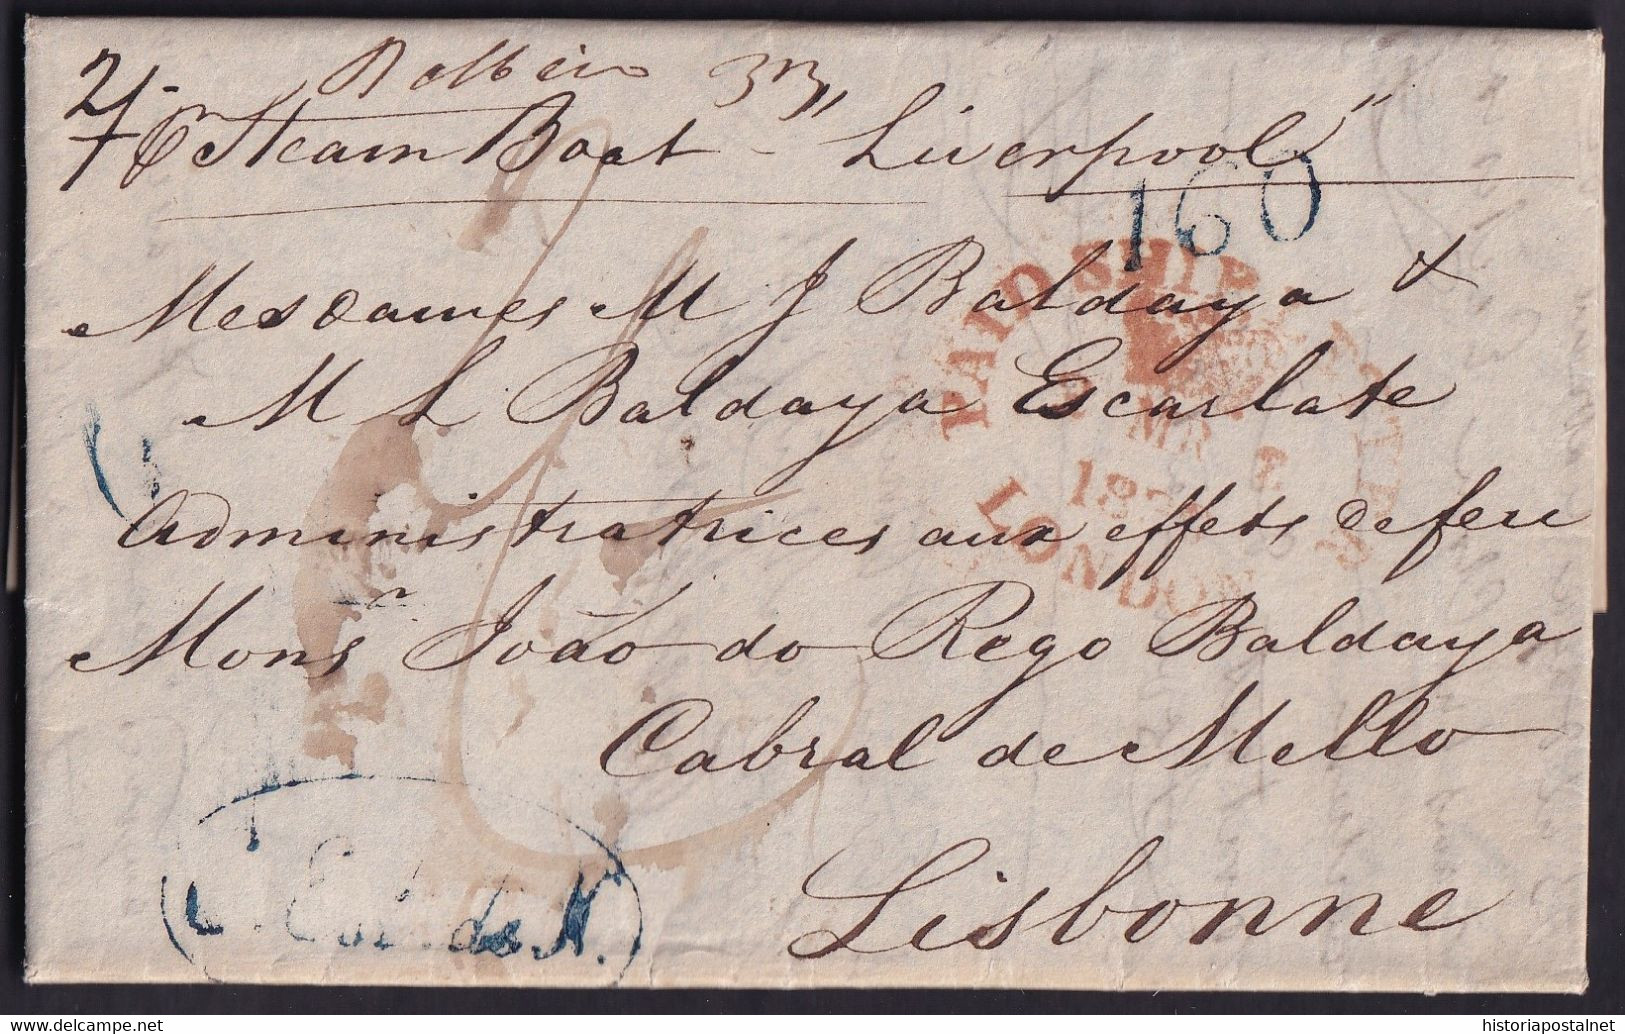 2/-
7
33
pr Steam Boat - "Liverpool"
160
Mesdames M J Baldaya &
M L Baldaya Escarlate
Administratrices aux effets de feu
Monsr João do Rego Baldaya
Cabral de Mello
Lisbonne
PAID SHIP LETTER
MR
LONDON
Est. de N.
historiapostalnet